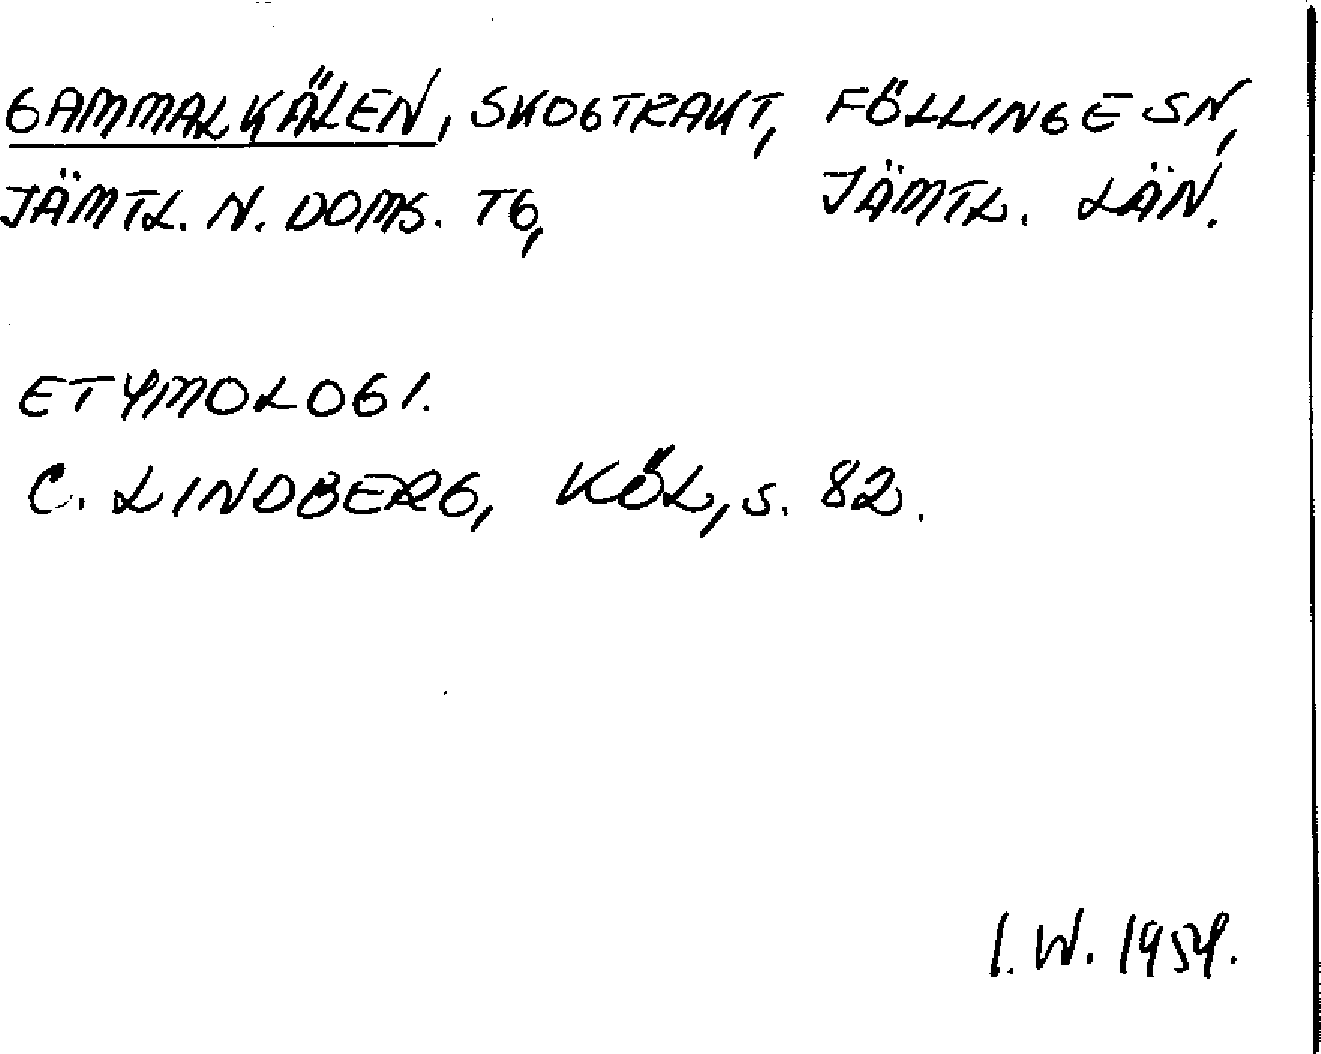 GAMMALKÄLEN, SKOGTRAKT, FÖLLINGE SN,
JÄMTL. N. DOMS. TG, JÄMTL. LÄN.
ETYMOLOGI.
C. LINDBERG, KÖL, S. 82.
I. W. 1954.